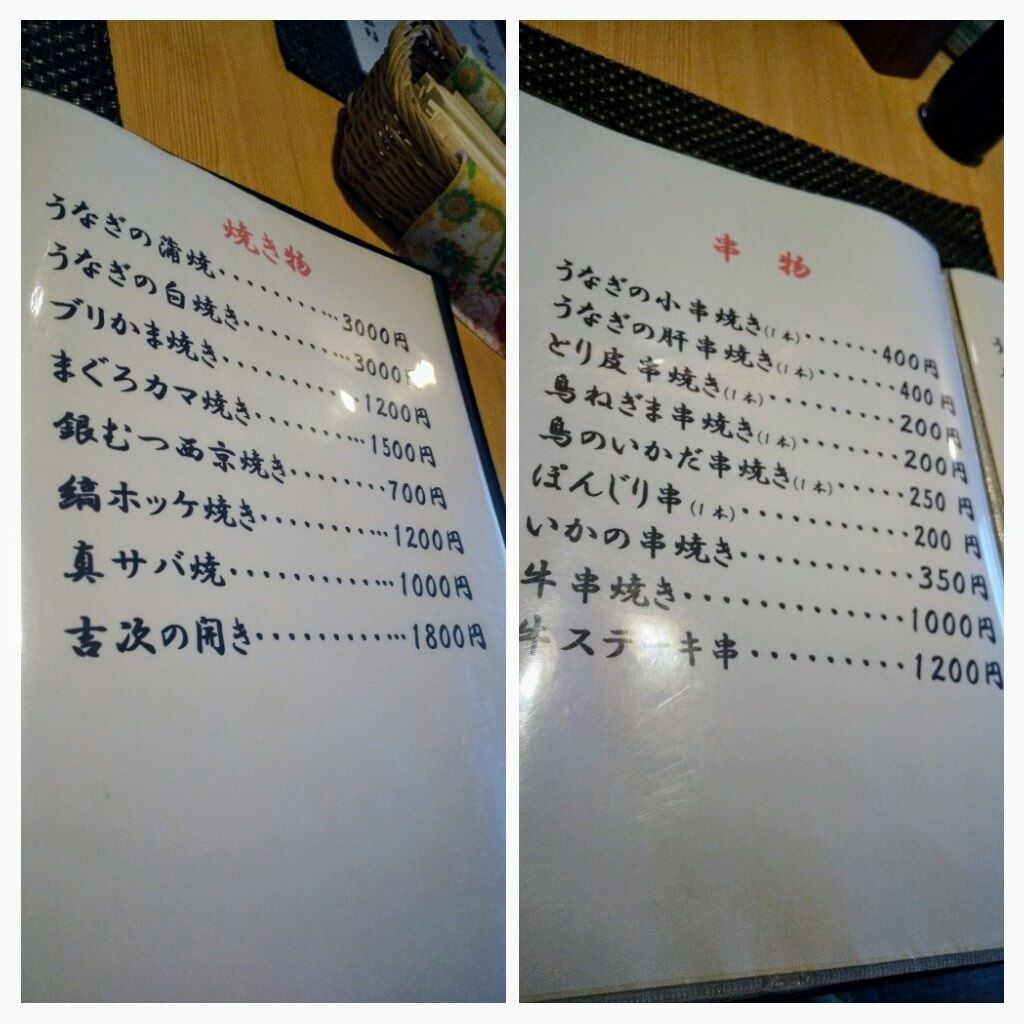 焼き物
うなぎの蒲焼・・・・・・・・・・・・・3000円
うなぎの白焼き・・・・・・・・・・・・3000円
ブリかま焼き・・・・・・・・・・・・・1200円
まぐろカマ焼き・・・・・・・・・・・・1500円
銀むつ西京焼き・・・・・・・・・・・700円
縞ホッケ焼き・・・・・・・・・・・・・1200円
真サバ焼・・・・・・・・・・・・・・・1000円
吉次の開き・・・・・・・・・・・・・・1800円
串 物
うなぎの小串焼き(1本)・・・・・・・400円
うなぎの肝串焼き(1本)・・・・・・・400円
とり皮串焼き(1本)・・・・・・・・・・200円
鳥ねぎま串焼き(1本)・・・・・・・・200円
鳥のいかだ串焼き(1本)・・・・・・250円
ぼんじり串(1本)・・・・・・・・・・・200円
いかの串焼き・・・・・・・・・・・・350円
牛串焼き・・・・・・・・・・・・・・1000円
牛ステーキ串・・・・・・・・・・1200円